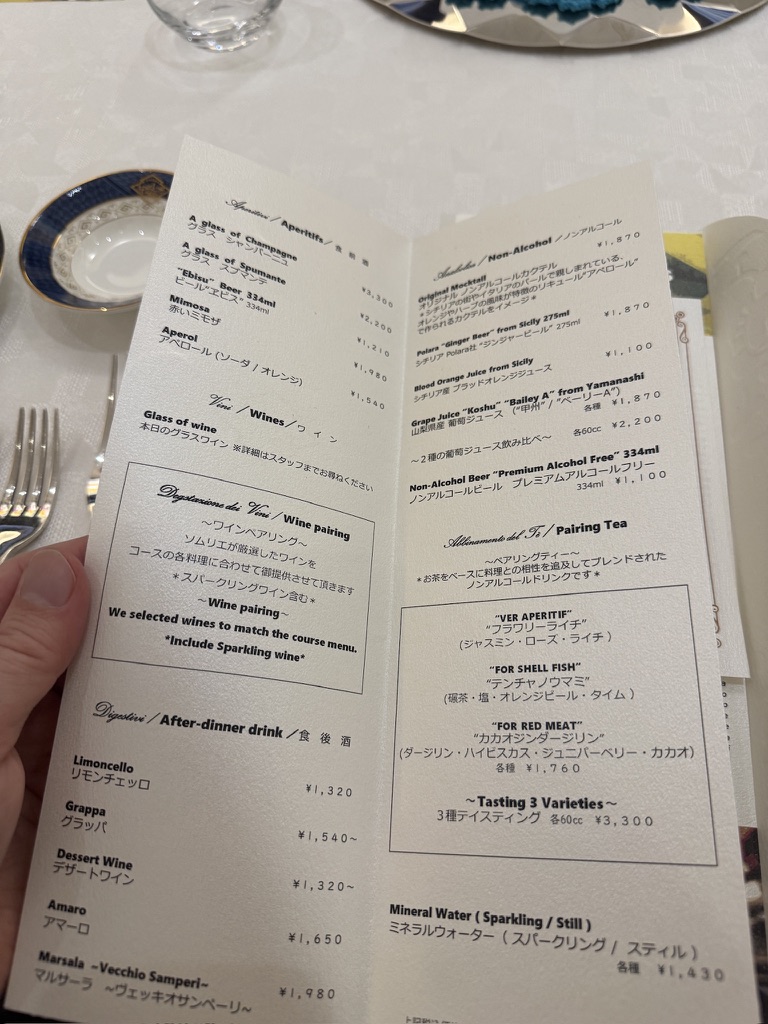 Aperitivi / Aperitifs / 食 前 酒
A glass of Champagne
グラス シャンパーニュ
¥3,300
A glass of Spumante
グラス スプマンテ
¥2,200
"Ebisu" Beer 334ml
ビール"ヱビス" 334ml
¥1,210
Mimosa
赤いミモザ
¥1,980
Aperol
アペロール (ソーダ / オレンジ)
¥1,540
Vini / Wines / ワ イ ン
Glass of wine
本日のグラスワイン ※詳細はスタッフまでお尋ねください
Degstazione dei Vini / Wine pairing
～ワインペアリング～
ソムリエが厳選したワインを
コースの各料理に合わせて御提供させて頂きます
＊スパークリングワイン含む＊
～Wine pairing～
We selected wines to match the course menu.
*Include Sparkling wine*
Digestivi / After-dinner drink / 食 後 酒
Limoncello
リモンチェッロ
¥1,320
Grappa
グラッパ
¥1,540~
Dessert Wine
デザートワイン
¥1,320~
Amaro
アマーロ
¥1,650
Marsala ~Vecchio Samperi~
マルサーラ ～ヴェッキオサンペーリ～
¥1,980
/ Non-Alcohol / ノンアルコール
Original Mocktail ¥1,870
オリジナル ノンアルコールカクテル
＊シチリアの街やイタリアのバールで親しまれている、
オレンジやハーブの風味が特徴のリキュール"アペロール"
で作られるカクテルをイメージ＊
Polara "Ginger Beer" from Sicily 275ml ¥1,870
シチリア Polara社 "ジンジャービール" 275ml
Blood Orange Juice from Sicily ¥1,100
シチリア産 ブラッドオレンジジュース
Grape Juice "Koshu" "Bailey A" from Yamanashi
山梨県産 葡萄ジュース ("甲州" / "ベーリーA")
各種 ¥1,870
～2種の葡萄ジュース飲み比べ～ 各60cc ¥2,200
Non-Alcohol Beer "Premium Alcohol Free" 334ml
ノンアルコールビール プレミアムアルコールフリー
334ml ¥1,100
Abbinamento del Tè / Pairing Tea
～ペアリングティー～
＊お茶をベースに料理との相性を追及してブレンドされた
ノンアルコールドリンクです＊
"VER APERITIF"
"フラワリーライチ"
(ジャスミン・ローズ・ライチ )
"FOR SHELL FISH"
"テンチャノウマミ"
(碾茶・塩・オレンジピール・タイム )
"FOR RED MEAT"
"カカオジンダージリン"
(ダージリン・ハイビスカス・ジュニパーベリー・カカオ)
各種 ¥1,760
～Tasting 3 Varieties～
3種テイスティング 各60cc ¥3,300
Mineral Water ( Sparkling / Still )
ミネラルウォーター ( スパークリング / スティル )
各種 ¥1,430